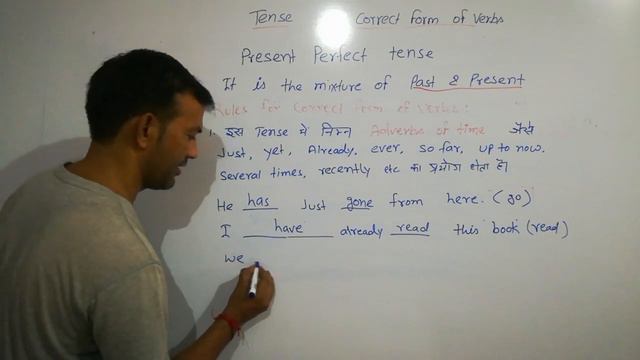 Tense Correct form of Verbs
Present Perfect tense
It is the mixture of Past & Present
Rules for Correct form of Verbs:
1. इस Tense में निम्न Adverbs of time जैसे
Just, yet, Already, ever, so far, up to now.
Several times, recently etc का प्रयोग होता है।
He has Just gone from here. (go)
I have already read this book (read)
we